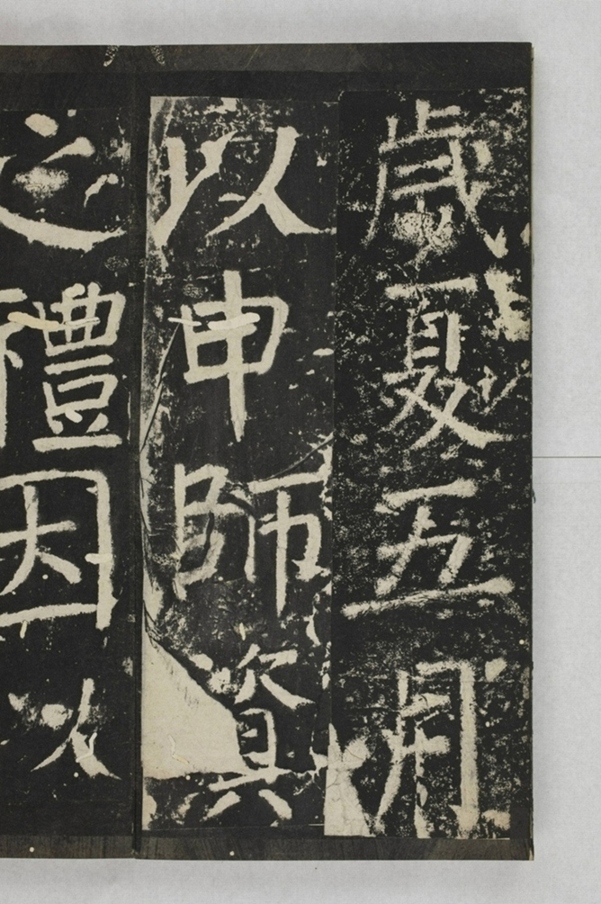 歲夏五月
以申師資
之禮因以